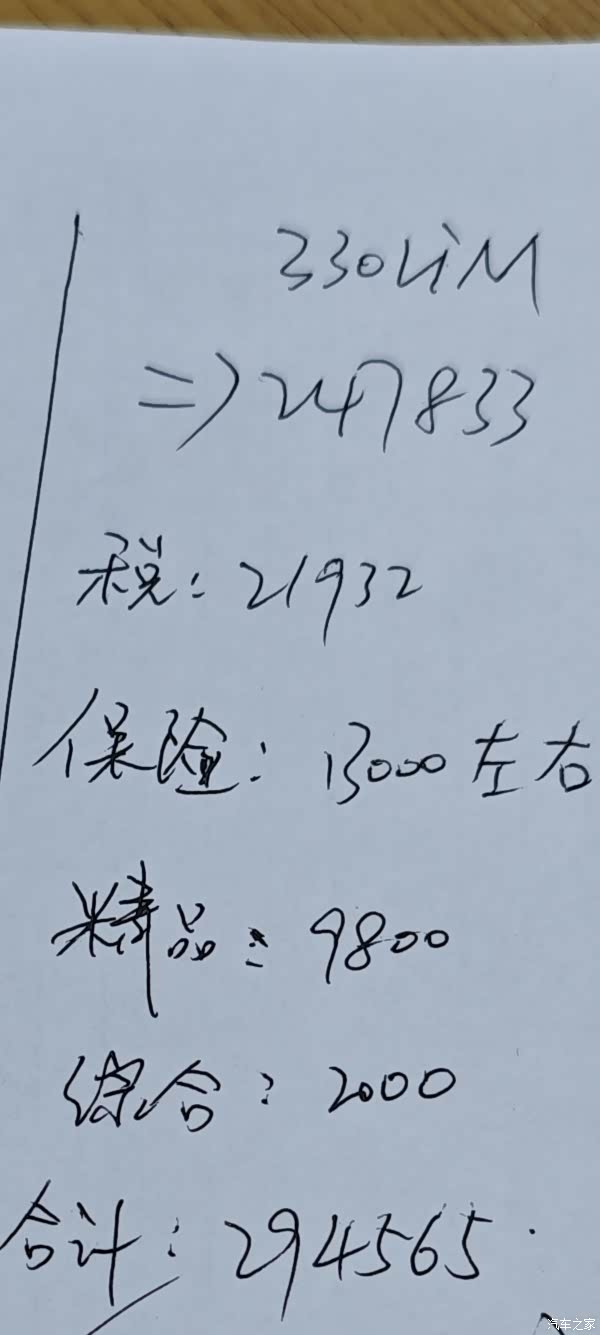 330LiM
=>247833
税:21932
保险:13000左右
精品:9800
综合:2000
合计:294565.
汽车之家